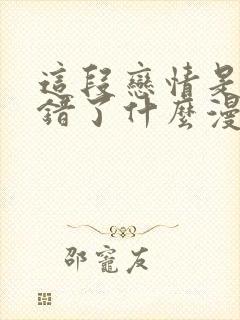 這段戀情是
錯了什麼漫
邵寵友